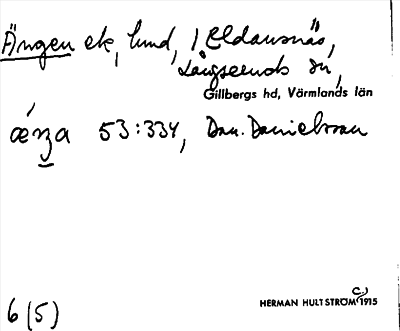 Ängen ek, lund, / Eldansnäs,
Långseruds sn,
Gillbergs hd, Värmlands län
53:334, Dan. Danielsson
HERMAN HULTSTRÖM (C.) 1915
6 (5)